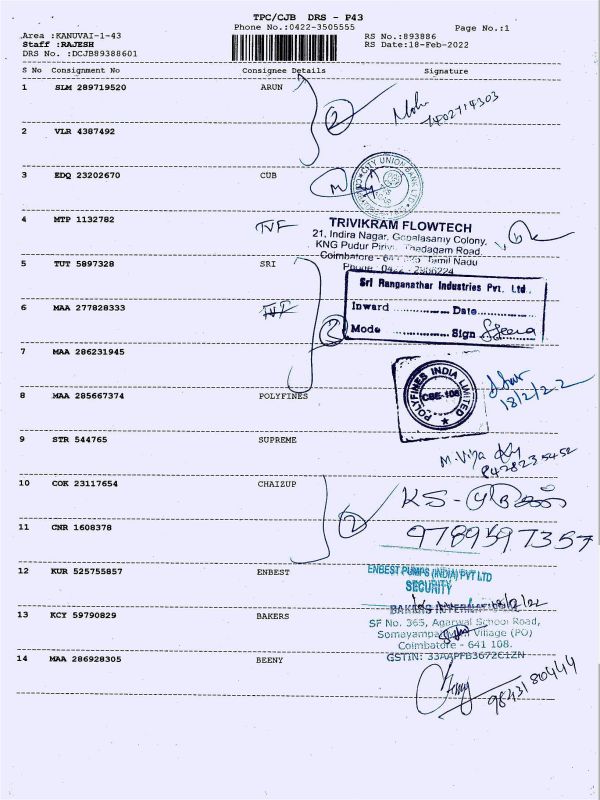 TPC/CJB DRS - P43
Phone No.:0422-3505555
Page No.:1
Area :KANUVAI-1-43
RS No.:893886
Staff :RAJESH
RS Date:18-Feb-2022
DRS No. :DCJB89388601
S No Consignment No Consignee Details Signature
1 SLM 289719520 ARUN
2
2 VLR 4387492
3 EDQ 23202670 CUB
CITY UNION BANK LTD
4 MTP 1132782 TVF
TRIVIKRAM FLOWTECH
21, Indira Nagar, Gopalasamy Colony,
KNG Pudur Pirivu, Thadagam Road,
Coimbatore - 641 025 Tamil Nadu
Phone: 0422 - 2906224
5 TUT 5897328 SRI
Sri Ranganathar Industries Pvt. Ltd..
Inward .............. Date..............
Mode .............. Sign
6 MAA 277828333 TVF
2
7 MAA 286231945
8 MAA 285667374 POLYFINES
POLYFINES INDIA LIMITED
CBE-108
18/2/22
9 STR 544765 SUPREME
8428235452
10 COK 23117654 CHAIZUP
KS -
2
11 CNR 1608378
9789597357
12 KUR 525755857 ENBEST
ENBEST PUMPS (INDIA) PVT LTD
SECURITY
18/2/22
13 KCY 59790829 BAKERS
BAKERS
SF No. 365, Agarwal School Road,
Village (PO)
Coimbatore - 641 108.
GSTIN: 33AAPFB3672C1ZN
14 MAA 286928305 BEENY
9843180444